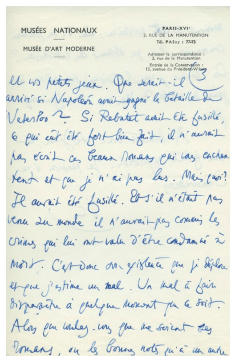 MUSÉES NATIONAUX
MUSÉE D'ART MODERNE
PARIS-XVIᵉ
2, RUE DE LA MANUTENTION
Tél. PASsy : 77-45
Adresser la correspondance :
2, rue de la Manutention
Entrée de la Conservation :
3
et vos petits jeux. Que serait-il
arrivé si Napoléon avait gagné la bataille de
Waterloo ? Si Rebatet avait été fusillé,
ce qui eût été fort bien fait, il n'aurait
pas écrit ces beaux romans qui vous
et que je n'ai pas lus. Mais quoi ?
Il aurait été fusillé. Et s'il n'était pas
venu au monde il n'aurait pas commis les
crimes qui lui ont valu d'être condamné à
mort. C'est donc son existence que je déplore
et que j'estime un mal. Un mal à faire
disparaître à quelque moment que ce soit.
Alors que voulez-vous que me soient ses
romans, ou les bonnes notes qu'à un autre